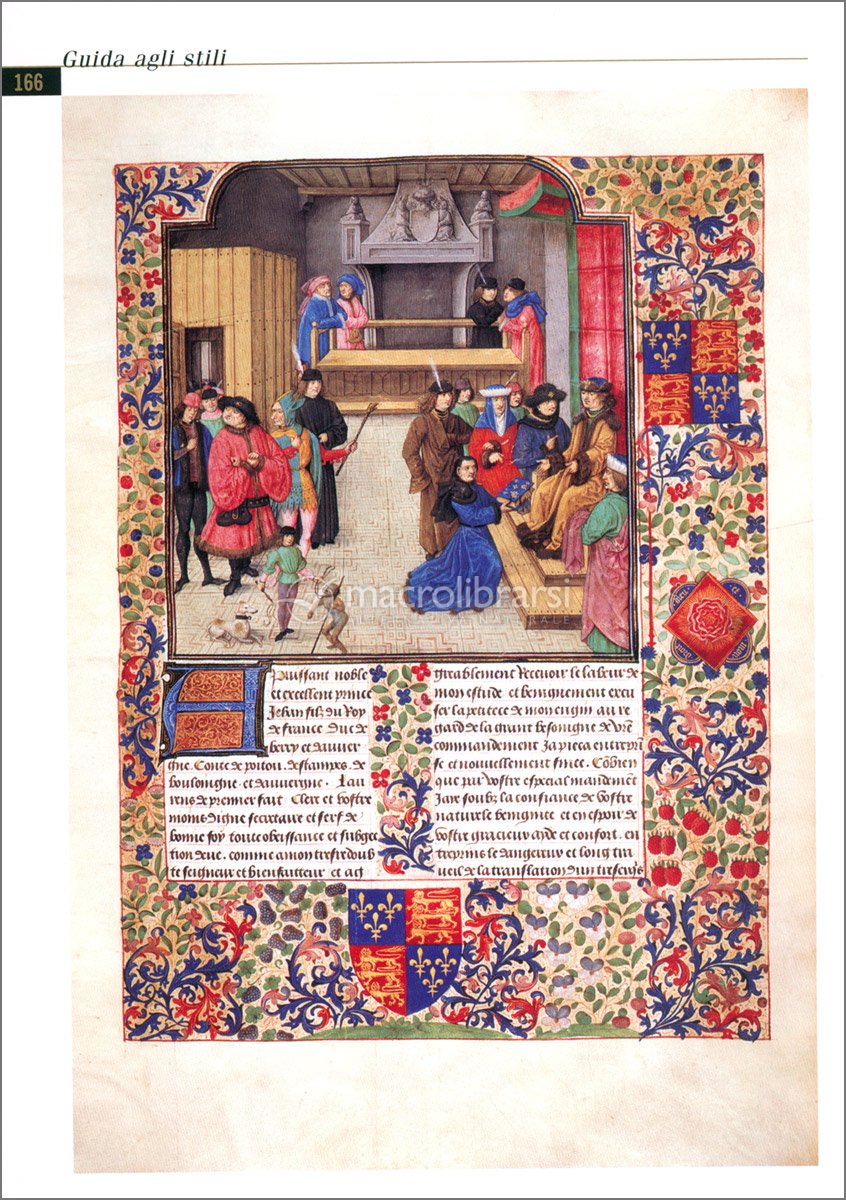 Guida agli stili
166
A Puissant noble
et excellent prince
Jehan filz du Roy
de france Duc de
berry et dauuer
gne. Conte de poitou. destampes. de
boulongne. et dauuergne. Lau
rens de premier fait Clerc et vostre
moins digne secretaire et serf de
bonne foy toute obeissance et subgec
tion deue. comme a mon tresredoub
te seigneur et bienfaitteur et ag
greablement Receuoir le labeur de
mon estude et benignement excu
ser la petitece de mon engin au re
gard de la grant besongne de vre
commandement Ja pieca entrepri
se et nouuellement finee. Cobien
que par vostre especial mandemet
Jaye soubz la confiance de vostre
naturele benignite et en espoir de
vostre gracieux ayde et confort. en
trepris le dangereux et long tra
ueil de la translation dun
macrolibrarsi